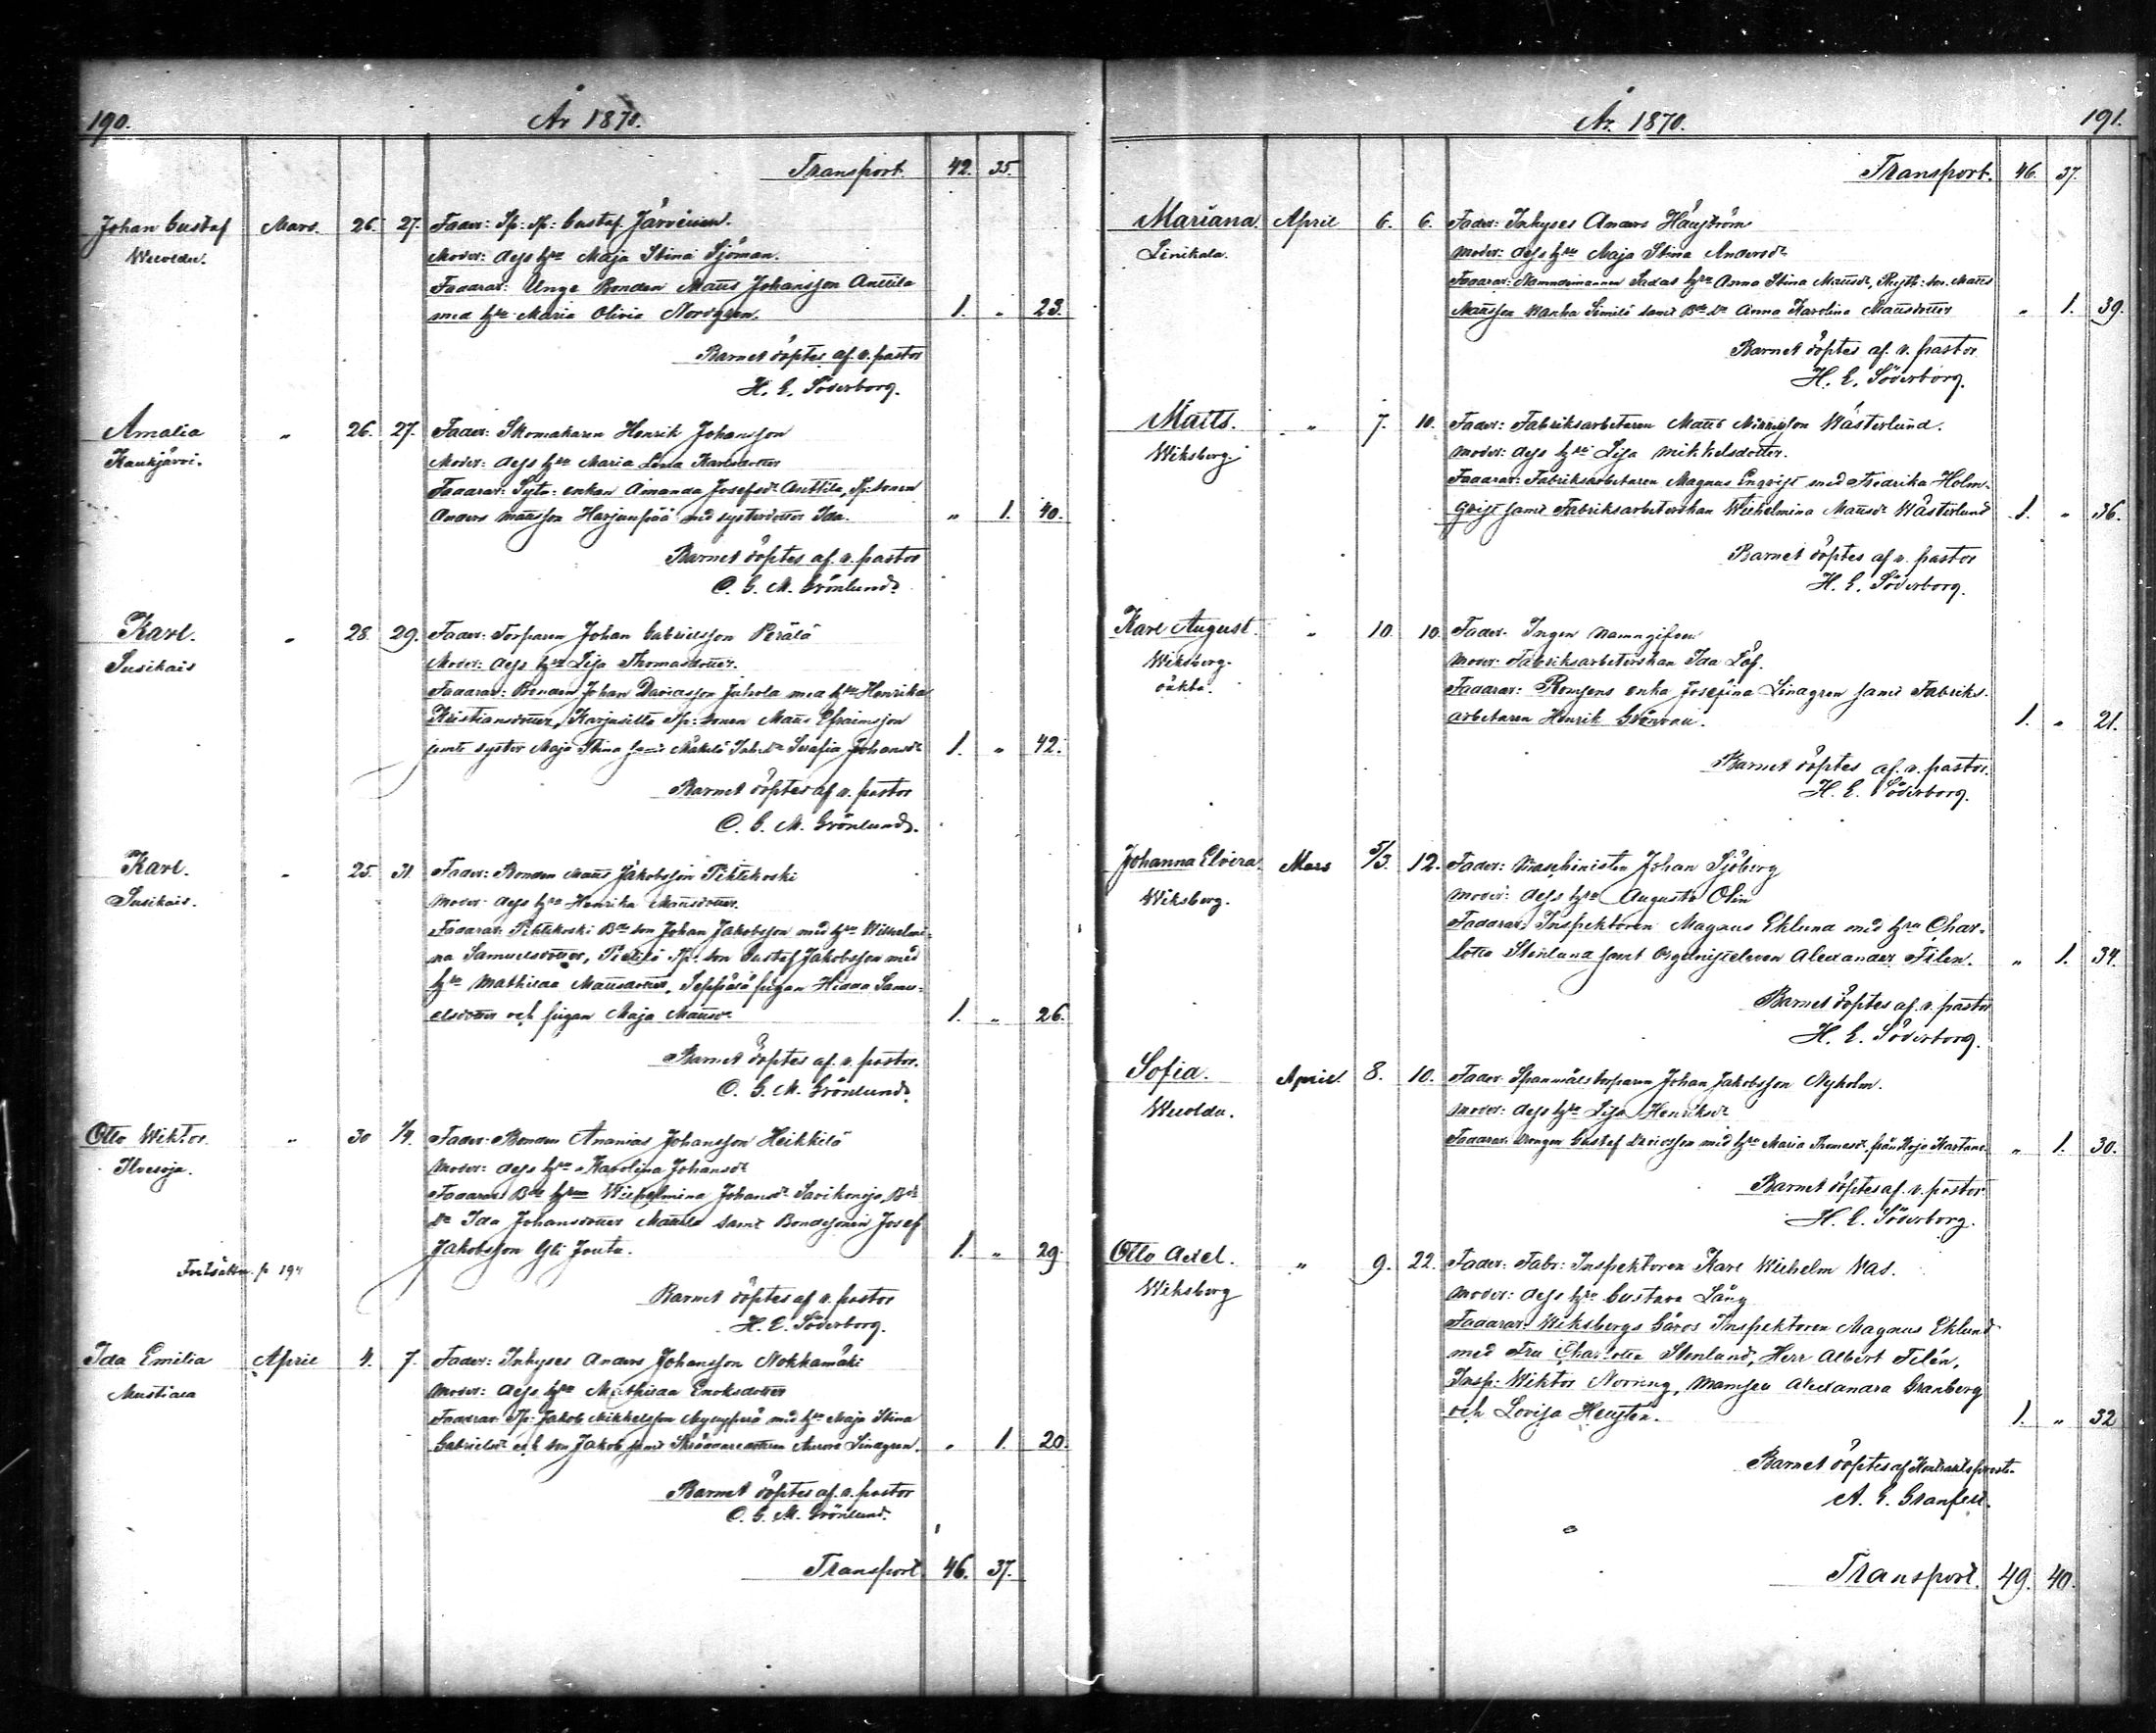 190.
År 1870.
Transport. 42. 35.
Johan Gustaf Mars. 26. 27. Fader: Sp: Sp: Gustaf Järvinen.
Moder: dess h:u Maja Stina Sjöman.
Faddrar: Unge Bonden Matts Johansson Anttila
med h:u Maria Olivia Nordgren. 1. „ 23.
Barnet döptes af v. pastor
H. E. Söderborg.
Amalia „ 26. 27. Fader: Skomakaren Henrik Johansson
Kaukjärvi. Moder: dess h:u Maria Lena Karlsdotter
Faddrar: Sytn: enkan Amanda Josefsd:r Anttila, Sp: sonen
Anders Mattsson Harjunpää med systerdotter Ida. „ 1. 40.
Barnet döptes af v. pastor
C. G. M. Grönlund.
Karl. „ 28. 29. Fader: Torparen Johan Gabrielsson Perälä
Susikais Moder: dess h:u Lisa Thomasdotter.
Faddrar: Bonden Johan Davidsson Juhola med h:u Henrika
Kristiansdotter, Sp: sonen Matts Efraimsson
jemte syster Maja Stina samt Mäkelä Serafia Johansd:r 1. „ 42.
Barnet döptes af v. pastor
C. G. M. Grönlund.
Karl. „ 25. 31. Fader: Bonden Matts Jakobsson Pihtikoski
Susikais. Moder: dess h:u Henrika Mattsdotter.
Faddrar: Pihtikoski B:de son Johan Jakobsson med h:u Wilhelmi-
na Samuelsdotter, Sp: son Gustaf Jakobsson med
h:u Mathilda Mattsdotter, Seppälä pigan Hilda Samu-
elsdotter och pigan Maja Mattsd:r 1. „ 26.
Barnet döptes af v. pastor.
C. G. M. Grönlund.
Otto Wiktor. „ 30 1/4. Fader: Bonden Ananias Johansson Heikkilä
Ilvesoja. Moder: dess h:u Karolina Johansd:r
Faddrar: B:de h:run Wilhelmina Johansd:r Savikonoja, B:de
d:r Ida Johansdotter Mattila samt Bondesonen Josef
Jakobsson Yli Jouta. 1. „ 29.
Fortsättn. p 194
Barnet döptes af v. pastor
H. E. Söderborg.
Ida Emilia April 4. 7. Fader: Inhyses Anders Johansson Nokkamäki
Mustiala Moder: dess h:u Mathilda Enoksdotter
Faddrar: Sp: Jakob Mikkelsson med h:u Maja Stina
Gabrielsd:r och son Jakob samt Skräddaredottern Aurora Lindgren. „ 1. 20.
Barnet döptes af v. pastor
C. G. M. Grönlund.
Transport. 46. 37.
År 1870.
191.
Transport. 46. 37.
Mariana. April 6. 6. Fader: Inhyses Anders Hägström
Linikkala. Moder: dess h:u Maja Stina Andersd:r
Faddrar: Nämndemannen h:u Anna Stina Mattsd:r, Matts
Mattsson Wanha Similä samt B:de d:r Anna Karolina Mattsdotter „ 1. 39.
Barnet döptes af v. pastor
H. E. Söderborg.
Matts. „ 7. 10. Fader: Fabriksarbetaren Matts Wästerlund.
Wiksberg. Moder: dess h:u Lisa Mikkelsdotter.
Faddrar: Fabriksarbetaren Magnus Engvist med Fredrika Holm-
qvist samt Fabriksarbeterskan Wilhelmina Mattsd:r Wästerlund 1. „ 36.
Barnet döptes af v. pastor
H. E. Söderborg.
Karl August. „ 10. 10. Fader: Ingen namngifven
Wiksberg. Moder: Fabriksarbeterskan Ida Löf.
oäkta. Faddrar: enka Josefina Lindgren samt Fabriks-
arbetaren Henrik 1. „ 21.
Barnet döptes af v. pastor.
H. E. Söderborg.
Johanna Elvira. Mars 5/3. 12. Fader: Maschinisten Johan Sjöberg
Wiksberg. Moder: dess h:u Augusta Olin
Faddrar: Inspektoren Magnus Eklund med h:u Char-
lotta Stenlund samt Organisteleven Alexander Filén. „ 1. 34.
Barnet döptes af v. pastor
H. E. Söderborg.
Sofia. April. 8. 10. Fader: Spanmålstorparen Johan Jakobsson Nyholm.
Moder: dess h:u Lisa Henriksd:r
Faddrar: Drängen Gustaf Davidsson med h:u Maria Thomasd:r från Koja „ 1. 30.
Barnet döptes af v. pastor
H. E. Söderborg.
Otto Axel. „ 9. 22. Fader: Fabr: Inspektoren Karl Wilhelm Nas.
Wiksberg Moder: dess h:u Gustava Lång
Faddrar: Wiksbergs Gårds Inspektoren Magnus Eklund
med Fru Charlotta Stenlund, Herr Albert Filén,
Insp: Wiktor Norring, Mamsell Alexandra Granberg
och Lovisa 1. „ 32
Barnet döptes af Kontraktsprosten
A. E. Granfelt.
Transport. 49. 40.